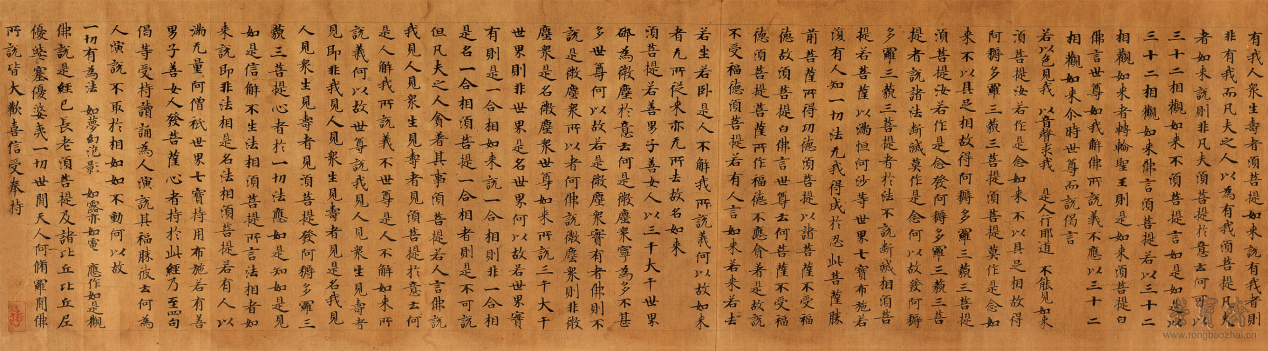 有我人眾生壽者須菩提如來說有我者則
非有我而凡夫之人以為有我須菩提凡夫
者如來說則非凡夫須菩提於意云何可以
三十二相觀如來不須菩提言如是如是以
三十二相觀如來佛言須菩提若以三十二
相觀如來者轉輪聖王則是如來須菩提白
佛言世尊如我解佛所說義不應以三十二
相觀如來尒時世尊而說偈言
若以色見我 以音聲求我 是人行邪道 不能見如來
須菩提汝若作是念如來不以具足相故得
阿耨多羅三藐三菩提須菩提莫作是念如
來不以具足相故得阿耨多羅三藐三菩提
須菩提汝若作是念發阿耨多羅三藐三菩
提者說諸法斷滅莫作是念何以故發阿耨
多羅三藐三菩提者於法不說斷滅相須菩
提若菩薩以滿恒河沙等世界七寶布施若
復有人知一切法无我得成於忍此菩薩勝
前菩薩所得功德須菩提以諸菩薩不受福
德故須菩提白佛言世尊云何菩薩不受福
德須菩提菩薩所作福德不應貪著是故說
不受福德須菩提若有人言如來若來若去
若坐若卧是人不解我所說義何以故如來
者无所從來亦无所去故名如來
須菩提若善男子善女人以三千大千世界
碎為微塵於意云何是微塵眾寧為多不甚
多世尊何以故若是微塵眾實有者佛則不
說是微塵眾所以者何佛說微塵眾則非微
塵眾是名微塵眾世尊如來所說三千大千
世界則非世界是名世界何以故若世界實
有則是一合相如來說一合相則非一合相
是名一合相須菩提一合相者則是不可說
但凡夫之人貪著其事須菩提若人言佛說
我見人見眾生見壽者見須菩提於意云何
是人解我所說義不世尊是人不解如來所
說義何以故世尊說我見人見眾生見壽者
見即非我見人見眾生見壽者見是名我見
人見眾生見壽者見須菩提發阿耨多羅三
藐三菩提心者於一切法應如是知如是見
如是信解不生法相須菩提所言法相者如
來說即非法相是名法相須菩提若有人以
滿无量阿僧祇世界七寶持用布施若有善
男子善女人發菩薩心者持於此經乃至四句
偈等受持讀誦為人演說其福勝彼云何為
人演說不取於相如如不動何以故
一切有為法 如夢幻泡影 如露亦如電 應作如是觀
佛說是經已長老須菩提及諸比丘比丘尼
優婆塞優婆夷一切世間天人阿脩羅聞佛
所說皆大歡喜信受奉持
榮寶齋
www.rongbaozhai.cn